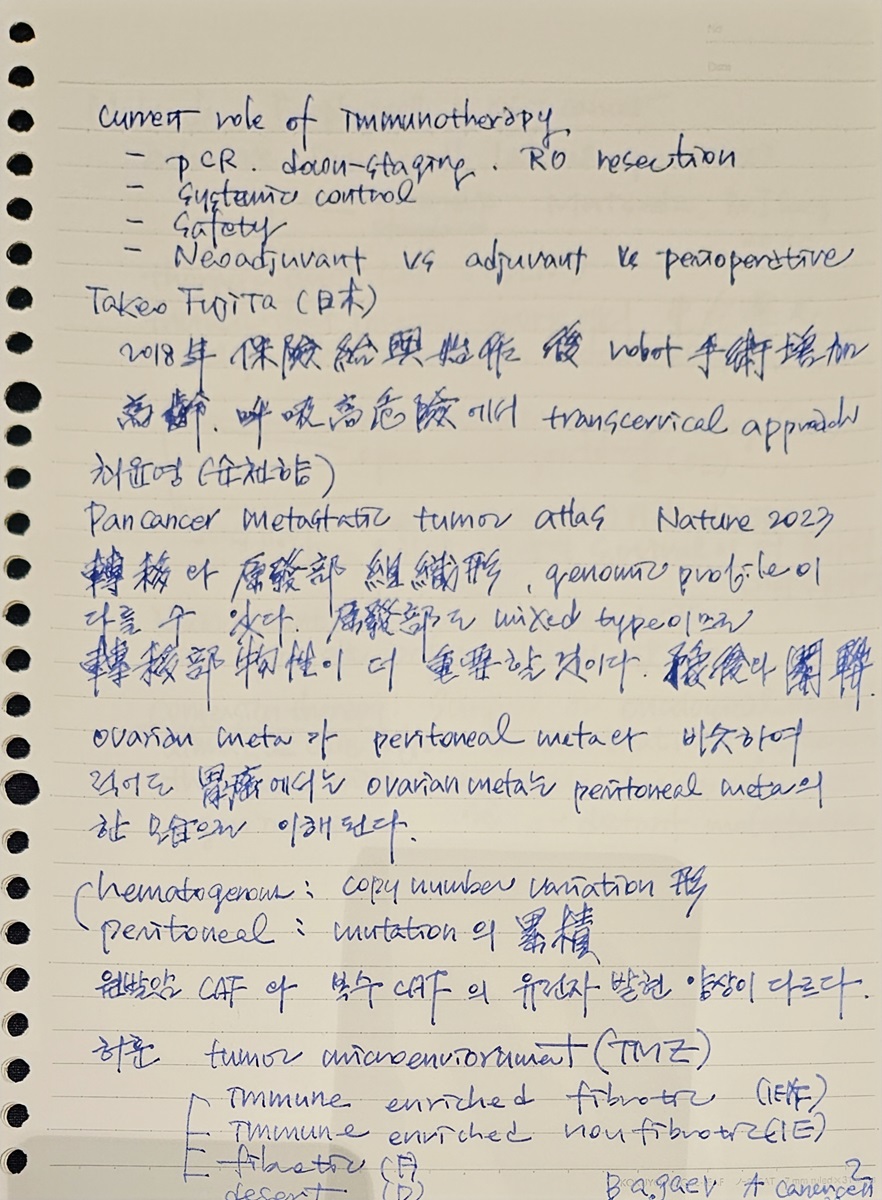 Current role of Immunotherapy
- pCR. down-staging. R0 resection
- Systemic control
- Safety
- Neoadjuvant vs adjuvant vs perioperative
Takeo Fujita (日本)
2018年 保險給與始作 後 robot 手術增加
高齡. 呼吸高危險에서 transcervical approach
최윤영 (순천향)
Pancancer metastatic tumor atlas Nature 2023
轉移와 原發部 組織形, genomic profile이
다를 수 있다. 原發部도 mixed type이므로
轉移部 物性이 더 重要할 것이다. 關聯.
ovarian meta가 peritoneal meta와 비슷하여
적어도 胃癌에서는 ovarian meta는 peritoneal meta의
한 모습으로 이해된다.
hematogenous : copy number variation 形
peritoneal : mutation의 累積
원발암 CAF 와 복수 CAF 의 유전자 발현 양상이 다르다.
허훈 tumor microenviornment (TME)
Immune enriched fibrotic (IE/F)
Immune enriched nonfibrotic (IE)
fibrotic (F)
desert (D) Bagaev A cancer cell 2